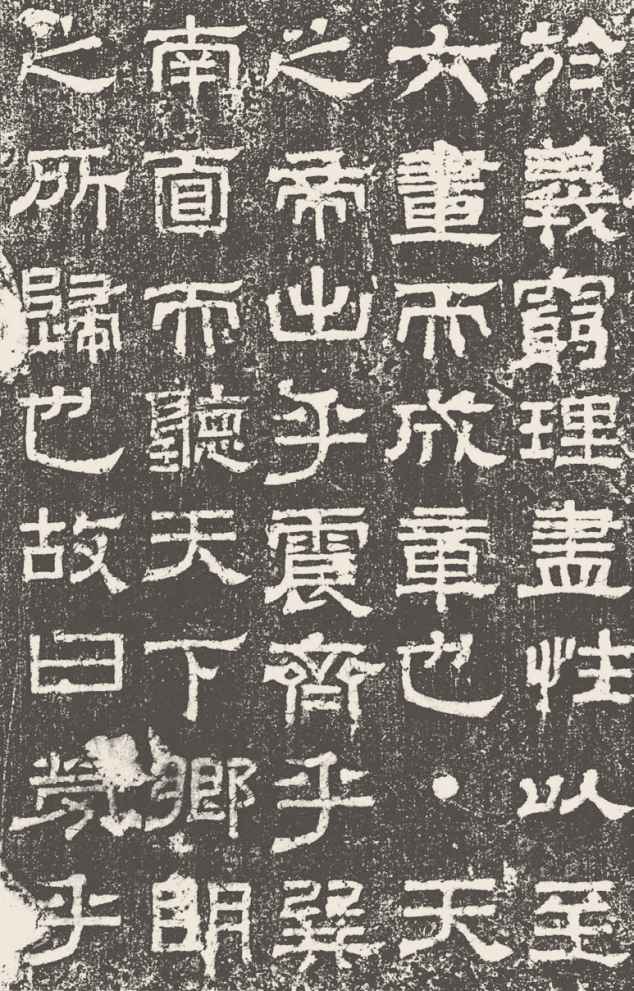 於義窮理盡性以至
六畫而成章也•天
之帝出乎震齊乎巽
南面而聽天下鄉明
之所歸也故曰勞乎